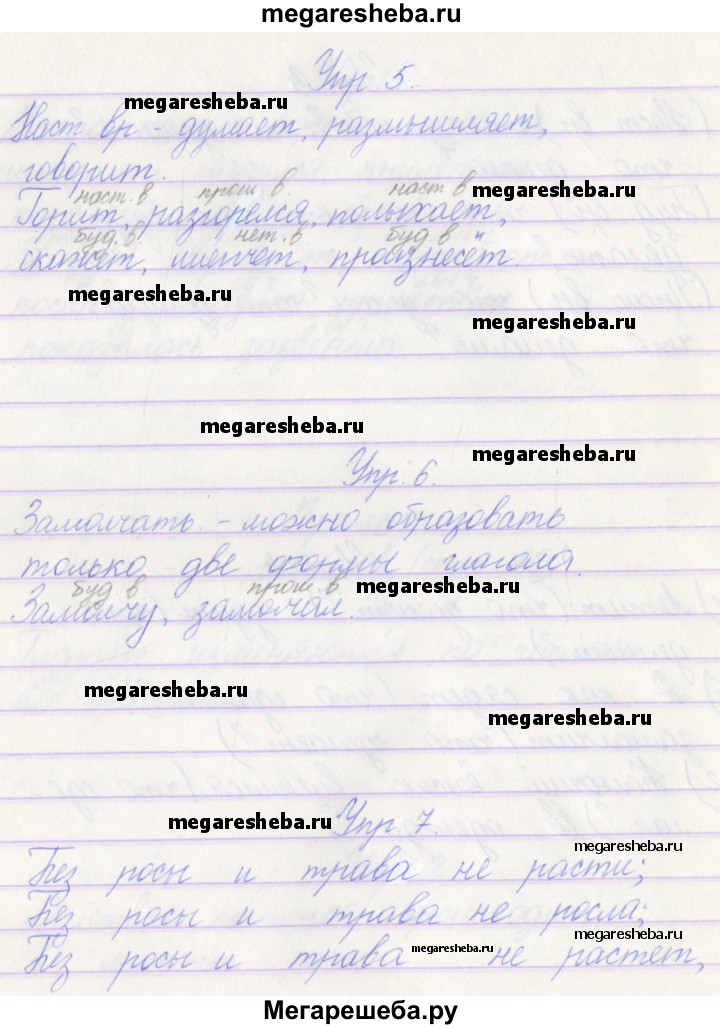 megaresheba.ru
Упр. 5.
megaresheba.ru
Наст вр - думает, размышляет,
говорит.
наст. в прош. в. наст в
megaresheba.ru
Горит, разгорелся, полыхает,
буд. в. нет. в буд в
скажет, шепчет, произнесёт.
megaresheba.ru
megaresheba.ru
megaresheba.ru
megaresheba.ru
Упр. 6.
Замолчать - можно образовать
только две формы глагола.
буд в прош. в
megaresheba.ru
Замолчу, замолчал.
megaresheba.ru
megaresheba.ru
megaresheba.ru
Упр 7.
megaresheba.ru
Без росы и трава не расти;
Без росы и трава не росла;
megaresheba.ru
megaresheba.ru
Без росы и трава не растет,
Мегарешеба.ру